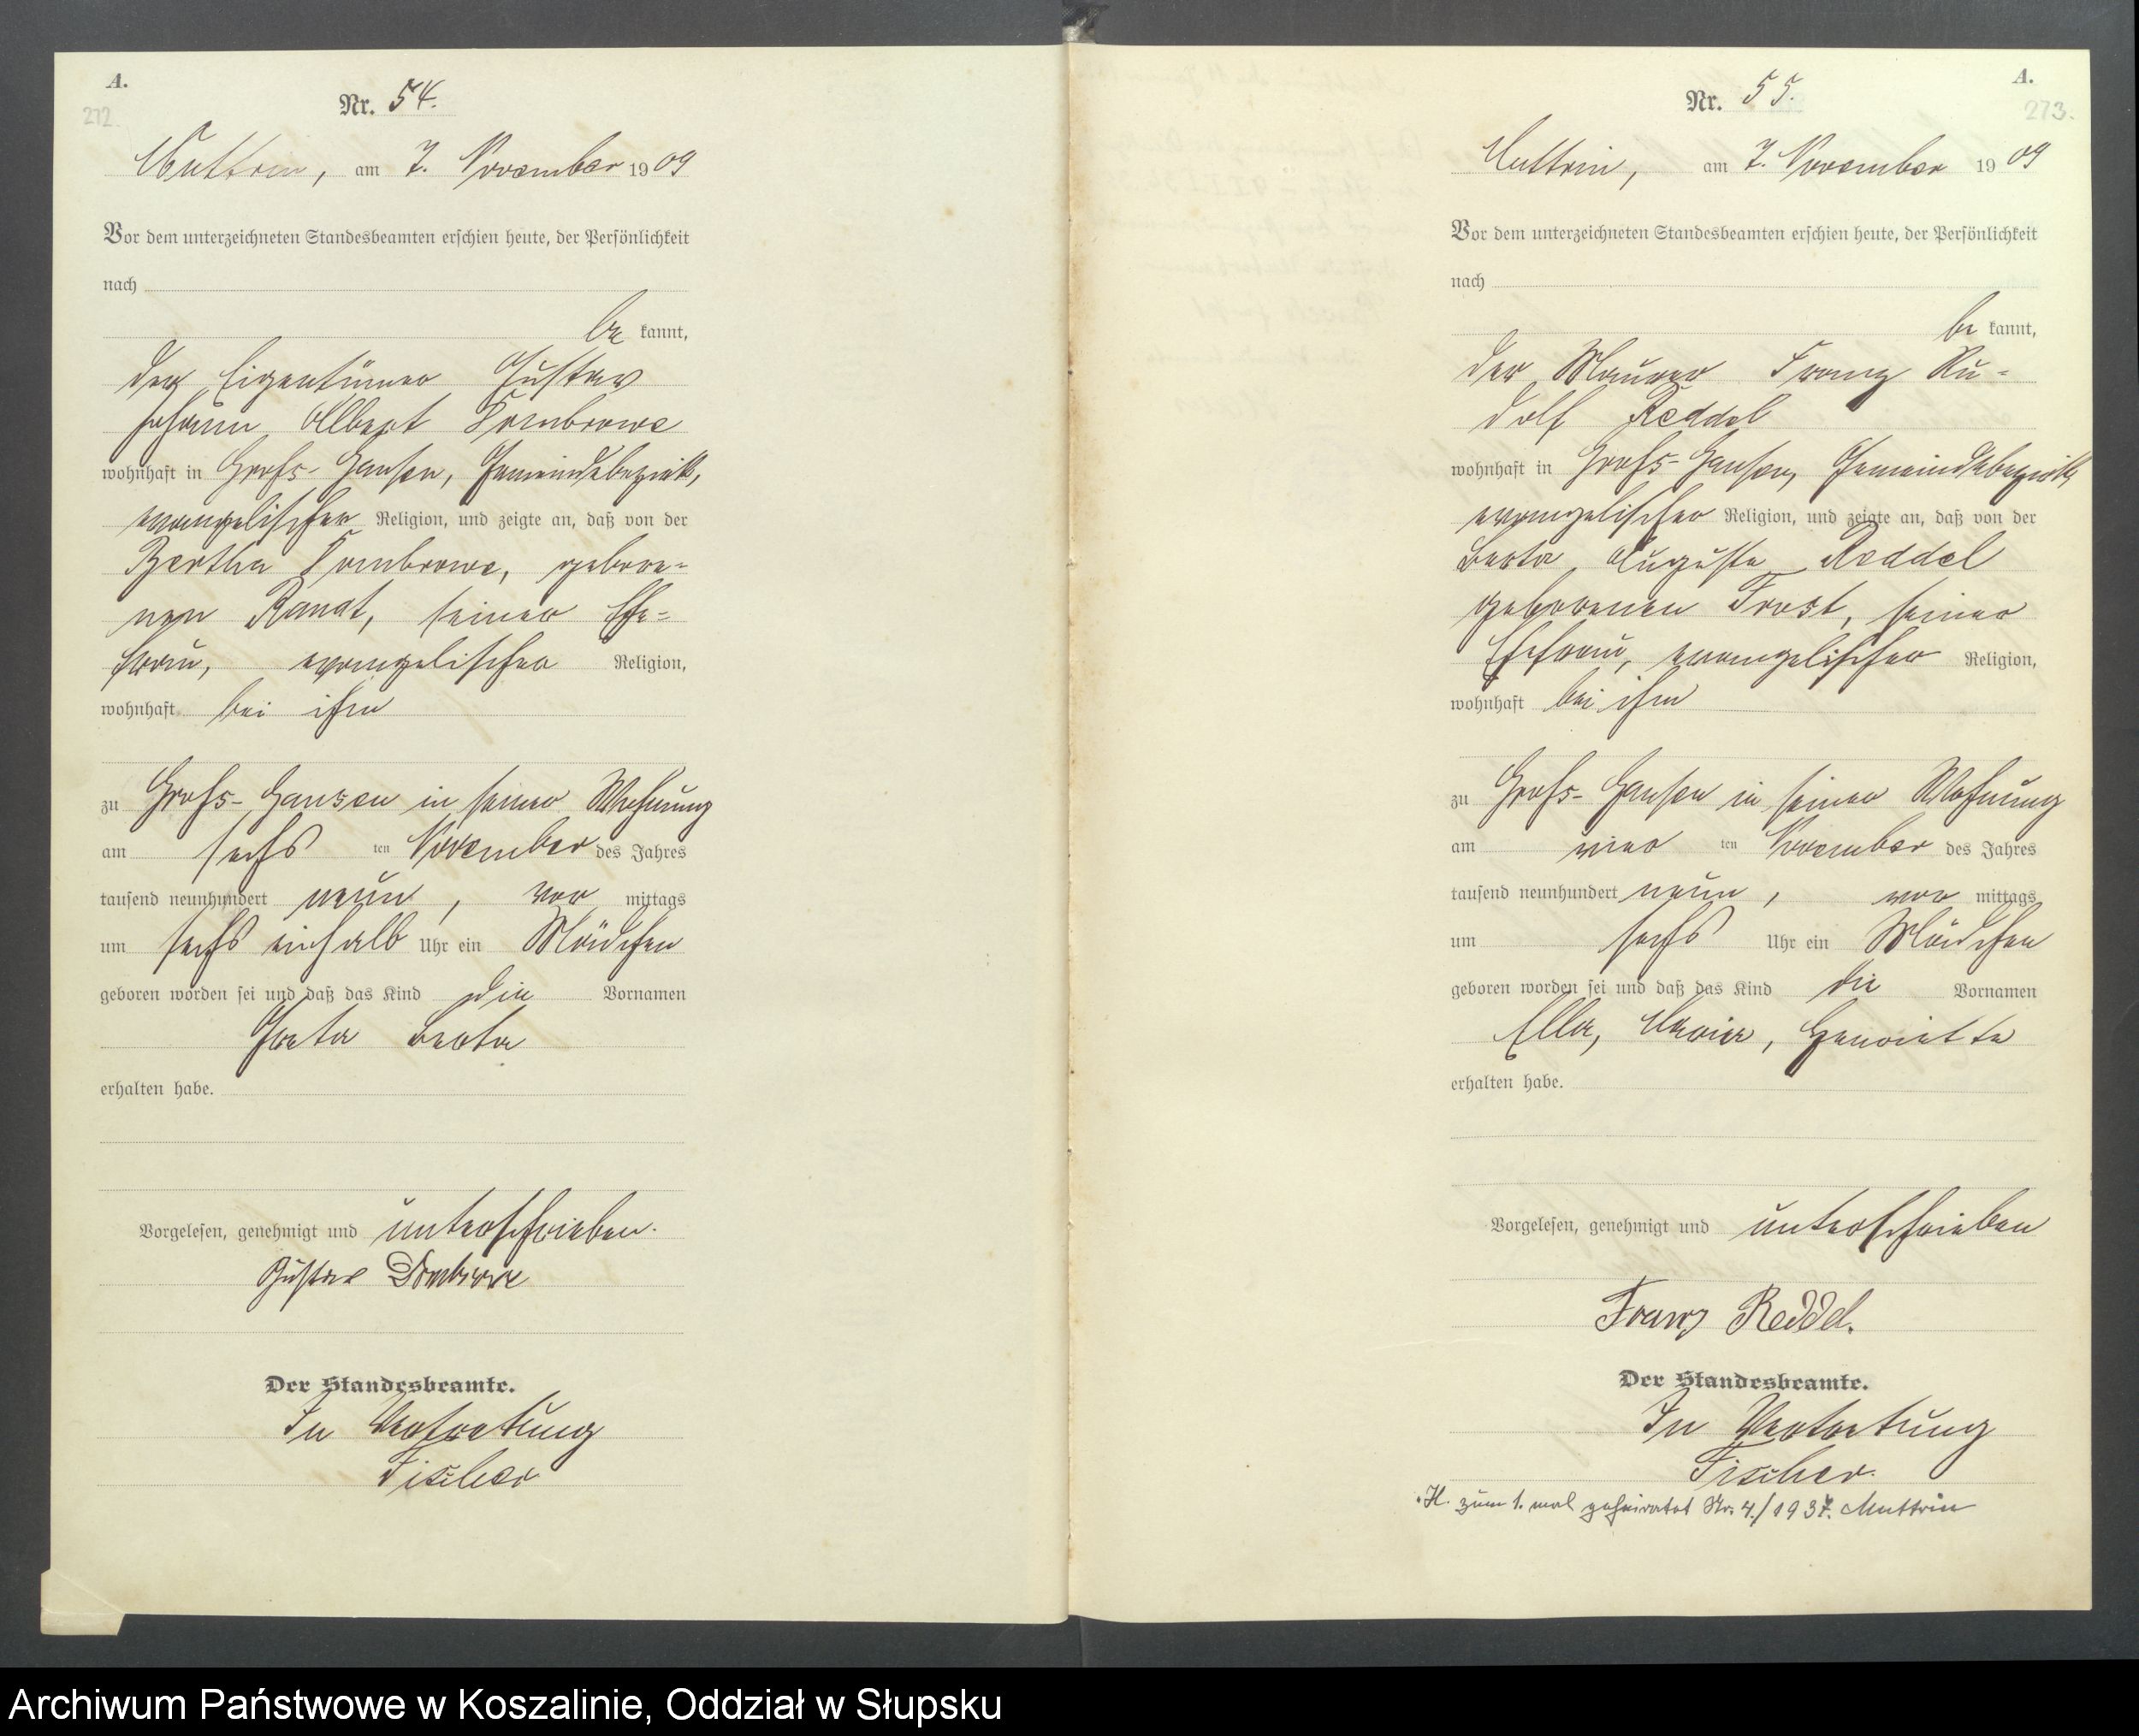 A.
272.
Nr. 54.
Muttrin, am 7. November 1909
Vor dem unterzeichneten Standesbeamten erschien heute, der Persönlichkeit
nach
be kannt,
der Eigentümer Gustav
Johann Albert Dombrowe
wohnhaft in Groß-Gansen, Gemeindebezirk,
evangelischer Religion, und zeigte an, daß von der
Bertha Dombrowe, gebore-
nen Ranat, seiner Ehe-
frau, evangelischer Religion,
wohnhaft bei ihm
zu Groß-Gansen in seiner Wohnung
am sechs ten November des Jahres
tausend neunhundert neun, vor mittags
um sechs einhalb Uhr ein Mädchen
geboren worden sei und daß das Kind die Vornamen
Greta Berta
erhalten habe.
Vorgelesen, genehmigt und unterschrieben.
Gustav Dombrowe
Der Standesbeamte.
In Vertretung
Fischer
A.
273.
Nr. 55.
Muttrin, am 7. November 1909
Vor dem unterzeichneten Standesbeamten erschien heute, der Persönlichkeit
nach
be kannt,
der Maurer Franz Ru-
dolf Reddel
wohnhaft in Groß-Gansen, Gemeindebezirk,
evangelischer Religion, und zeigte an, daß von der
Berta Auguste Reddel
geborenen Trost, seiner
Ehefrau, evangelischer Religion,
wohnhaft bei ihm
zu Groß-Gansen in seiner Wohnung
am vier ten November des Jahres
tausend neunhundert neun, vor mittags
um sechs Uhr ein Mädchen
geboren worden sei und daß das Kind die Vornamen
Ella, Maria, Henriette
erhalten habe.
Vorgelesen, genehmigt und unterschrieben
Franz Reddel.
Der Standesbeamte.
In Vertretung
Fischer.
H. zum 1. mal geheiratet Nr. 4./1937. Muttrin
Archiwum Państwowe w Koszalinie, Oddział w Słupsku